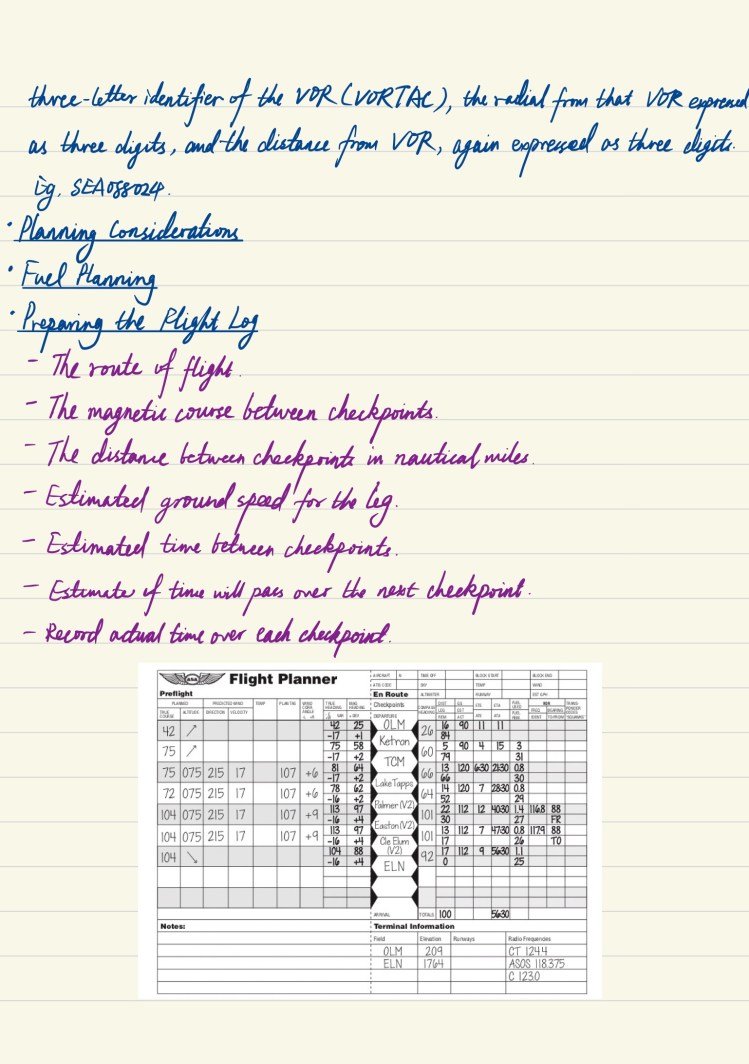 three-letter identifier of the VOR (VORTAC), the radial from that VOR expressed
as three digits, and the distance from VOR, again expressed as three digits.
Eg, SEA088024.
· Planning Considerations
· Fuel Planning
· Preparing the Flight Log
- The route of flight.
- The magnetic course between checkpoints.
- The distance between checkpoints in nautical miles.
- Estimated ground speed for the leg.
- Estimated time between checkpoints.
- Estimate of time will pass over the next checkpoint.
- Record actual time over each checkpoint.
ASA Flight Planner
Preflight
En Route
Checkpoints
DEPARTURE
42 42 25 OLM 26 16 90 11 11
-17 +1 84
75 75 58 Ketron 60 5 90 4 15 3
-17 +2 79 31
75 075 215 17 107 +6 81 64 TCM 66 13 120 630 2130 0.8
-17 +2 66 30
72 075 215 17 107 +6 78 62 Lake Tapps 64 14 120 7 2830 0.8
-16 +2 52 29
104 075 215 17 107 +9 113 97 Palmer (V2) 101 22 112 12 4030 1.4 116.8 88
-16 +4 30 27 FR
104 075 215 17 107 +9 113 97 Easton (V2) 101 13 112 7 4730 0.8 117.9 88
-16 +4 17 26 TO
104 104 88 Cle Elum (V2) 92 17 112 9 5630 1.1
-16 +4 0 25
ELN
ARRIVAL TOTALS 100 5630
Notes:
Terminal Information
Field Elevation Runways Radio Frequencies
OLM 209 CT 124.4
ELN 1764 ASOS 118.375
C 123.0